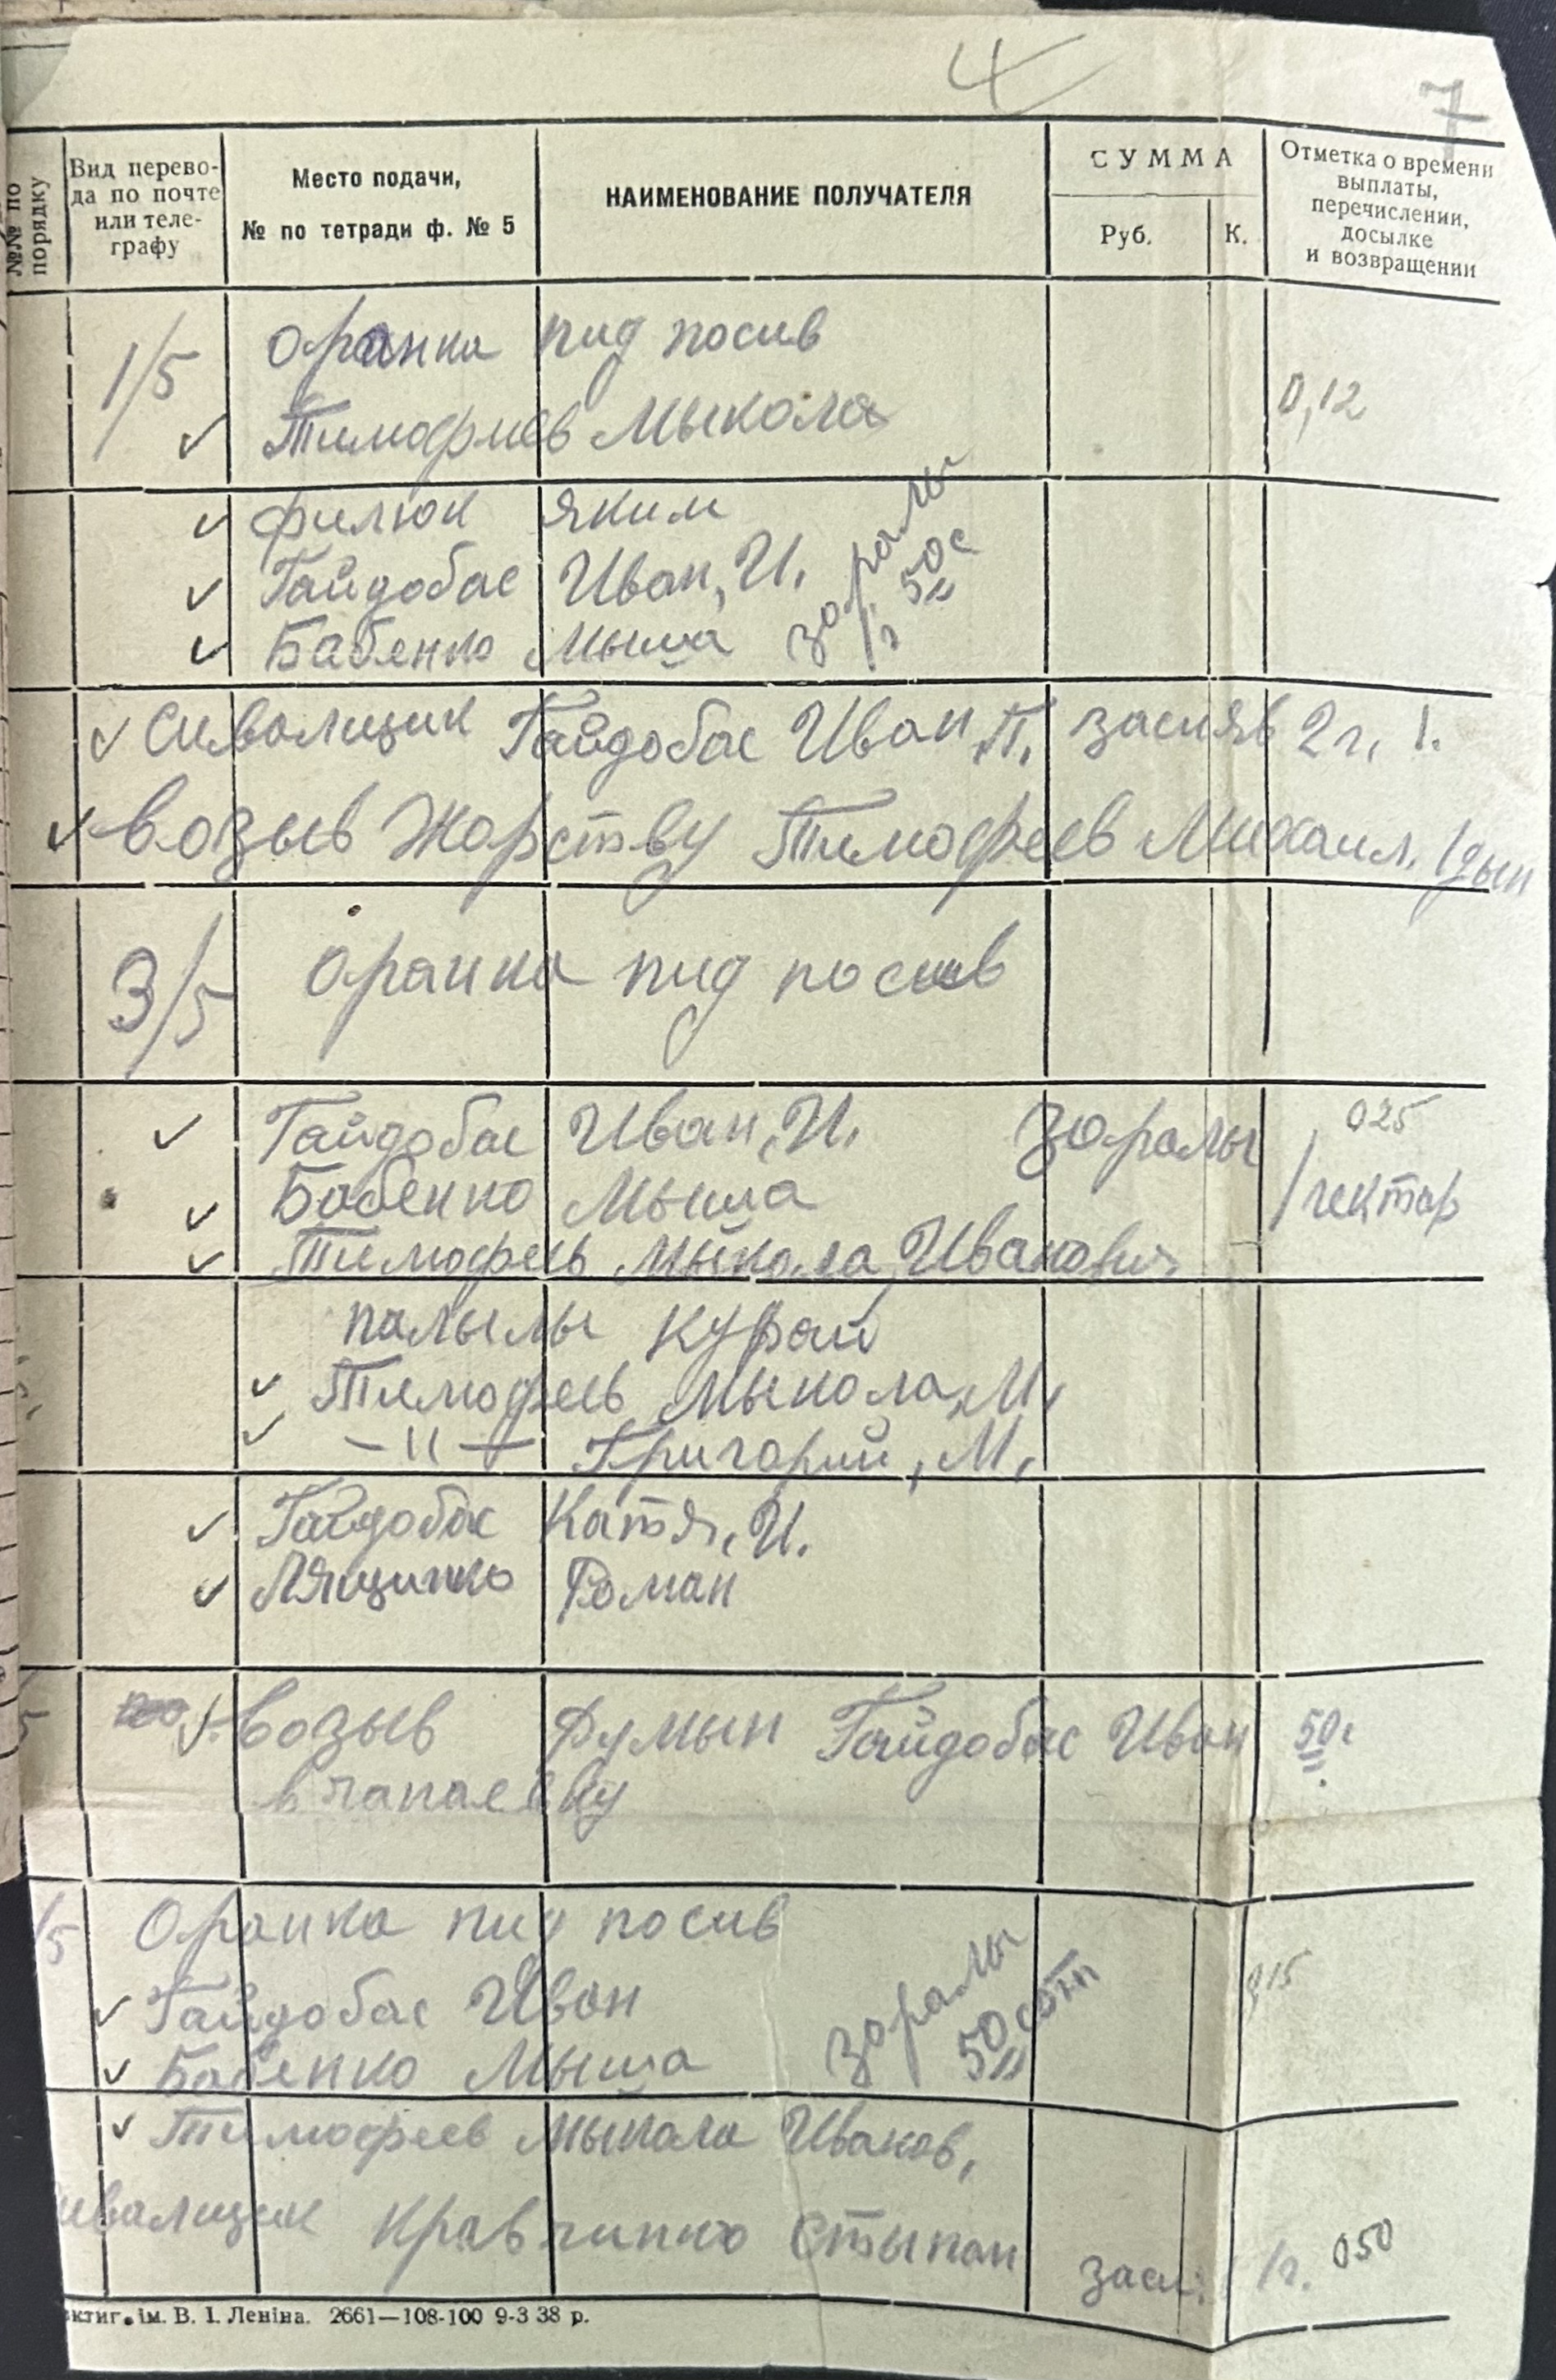 4
7
№№ по порядку
Вид перево-
да по почте
или теле-
графу
Место подачи,
№ по тетради ф. № 5
НАИМЕНОВАНИЕ ПОЛУЧАТЕЛЯ
СУММА
Руб. К.
Отметка о времени
выплаты,
перечислении,
досылке
и возвращении
1/5 Оранка пид посив
✓ Тимофиев Мыкола 0,12
✓ Филюк Яким
✓ Гайдобас Иван, И. заралы
✓ Бабенко Мыша 50с
✓ Сивалщик Гайдобас Иван, П. засияв 2 г, 1.
✓ Возыв Жорству Тимофеев Михаил. 1 дын
3/5 Оранка пид посив
✓ Гайдобас Иван, И. заралы 025
✓ Бабенко Мыша 1 гектар
✓ Тимофеев Мыкола, Иванович
палылы курай
✓ Тимофеев Мыкола, М.
✓ — 11 — Григорий, М.
✓ Гайдобас Катя, И.
✓ Лящинко Роман
✓ Возыв Румын Гайдобас Иван 50с
в чапаевку
/5 Оранка пид посив
✓ Гайдобас Иван заралы 015
✓ Бабенко Мыша 50 сотп
✓ Тимофеев Мыкола Иванов,
ивалщик Кравчинко Стыпан засы. 1г. 050
ктиг. ім. В. І. Леніна. 2661—108-100 9-3 38 р.